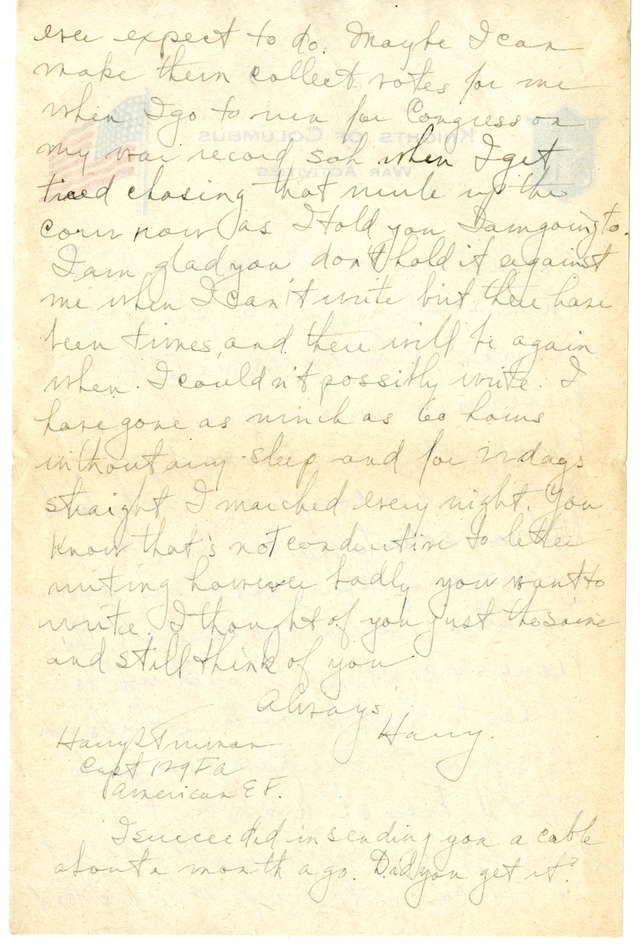 ever expect to do. Maybe I can
make them collect votes for me
when I go to run for Congress on
my war record, when I get
tired chasing that mule up the
corn row as I told you I am going to.
I am glad you don't hold it against
me when I can't write but there have
been times, and there will be again
when I couldn't possibly write. I
have gone as much as 60 hours
without any sleep and for 22 days
straight I marched every night. You
know that's not conducive to letter
writing however badly you want to
write. I thought of you just the same
and still think of you
Always
Harry.
Harry S Truman
Capt 129 FA
American E F.
I succeeded in sending you a cable
about a month ago. Did you get it?
KNIGHTS OF COLUMBUS
WAR ACTIVITIES